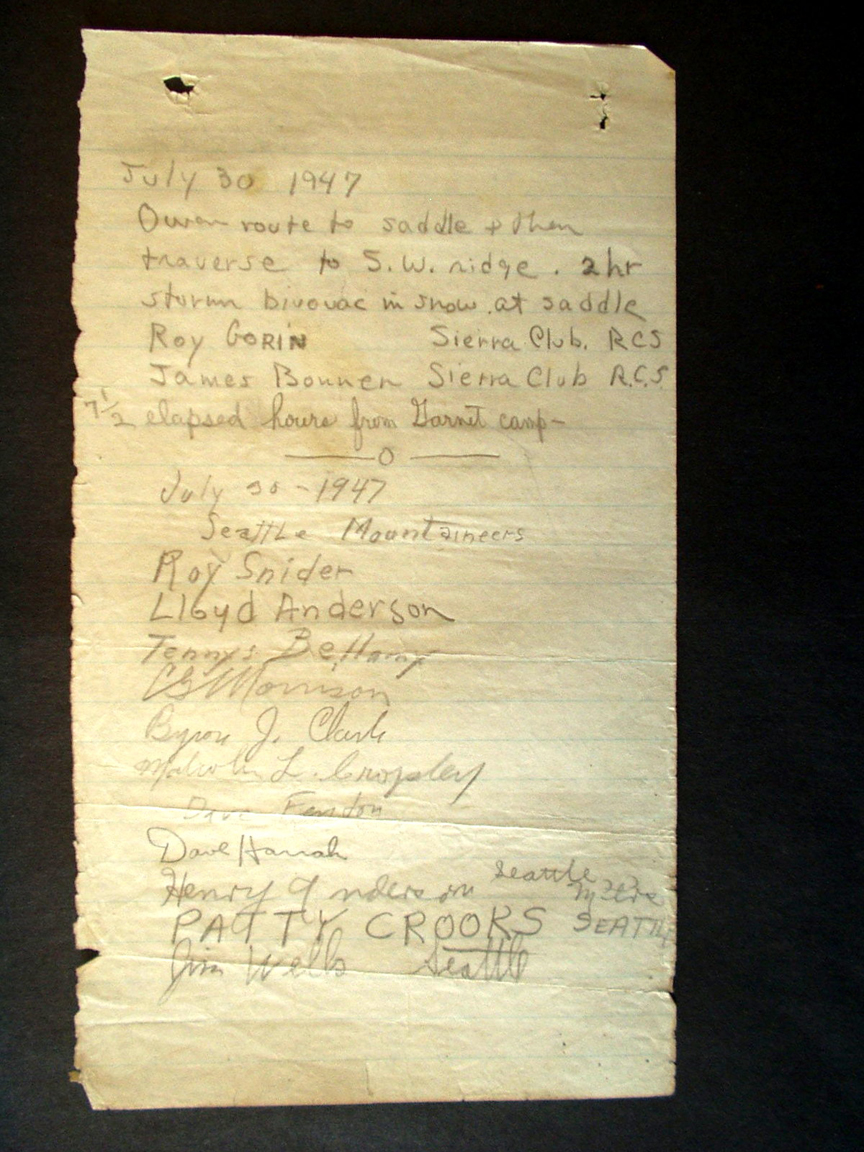 July 30 1947
Owen route to saddle & then
traverse to S.W. ridge. 2 hr
storm bivouac in snow at saddle
Roy GORIN Sierra Club. RCS
James Bonner Sierra Club R.C.S.
7 1/2 elapsed hours from Garnet camp-
—o—
July 30-1947
Seattle Mountaineers
Roy Snider
Lloyd Anderson
Tennys Bellamy
CG Morrison
Byron J. Clark
Malcolm L. Cropley
Dave
Dave Harrah
Henry Anderson Seattle
PATTY CROOKS SEATTLE
Jim Wells Seattle